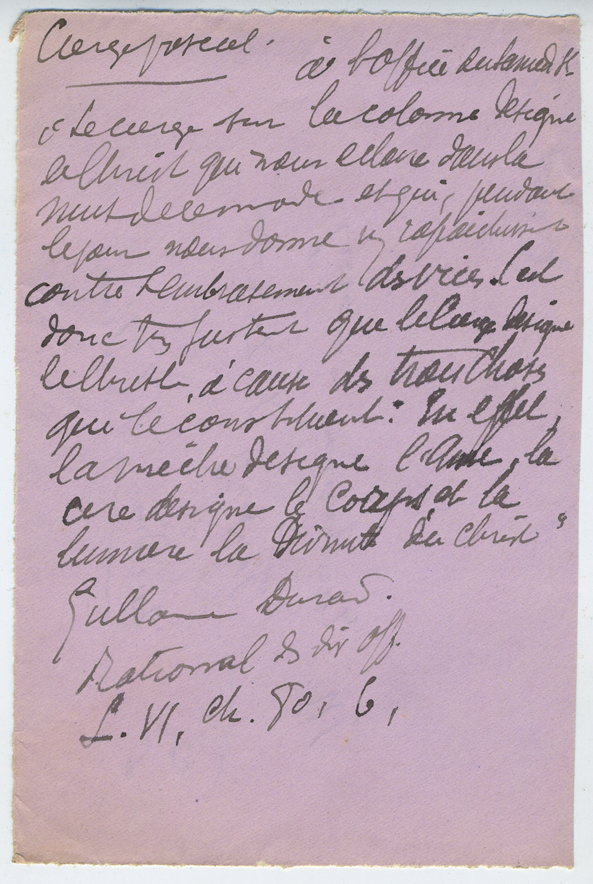 Cierge pascal.
à l'Office du Samedi St
« Le cierge sur la colonne désigne
le Christ qui nous éclaire dans la
nuit de ce monde et qui, pendant
le jour nous donne un rafraichiss
contre l'embrasement des vices. Il est
donc très justent que le Cierge désigne
le Christ, à cause des trois choses
qui le constituent : En effet,
la mèche désigne l'Ame, la
cire désigne le Corps, et la
lumière la Divinité du Christ »
Guillaume Durand.
Rational des div off.
L. VI, ch. 80, 6,